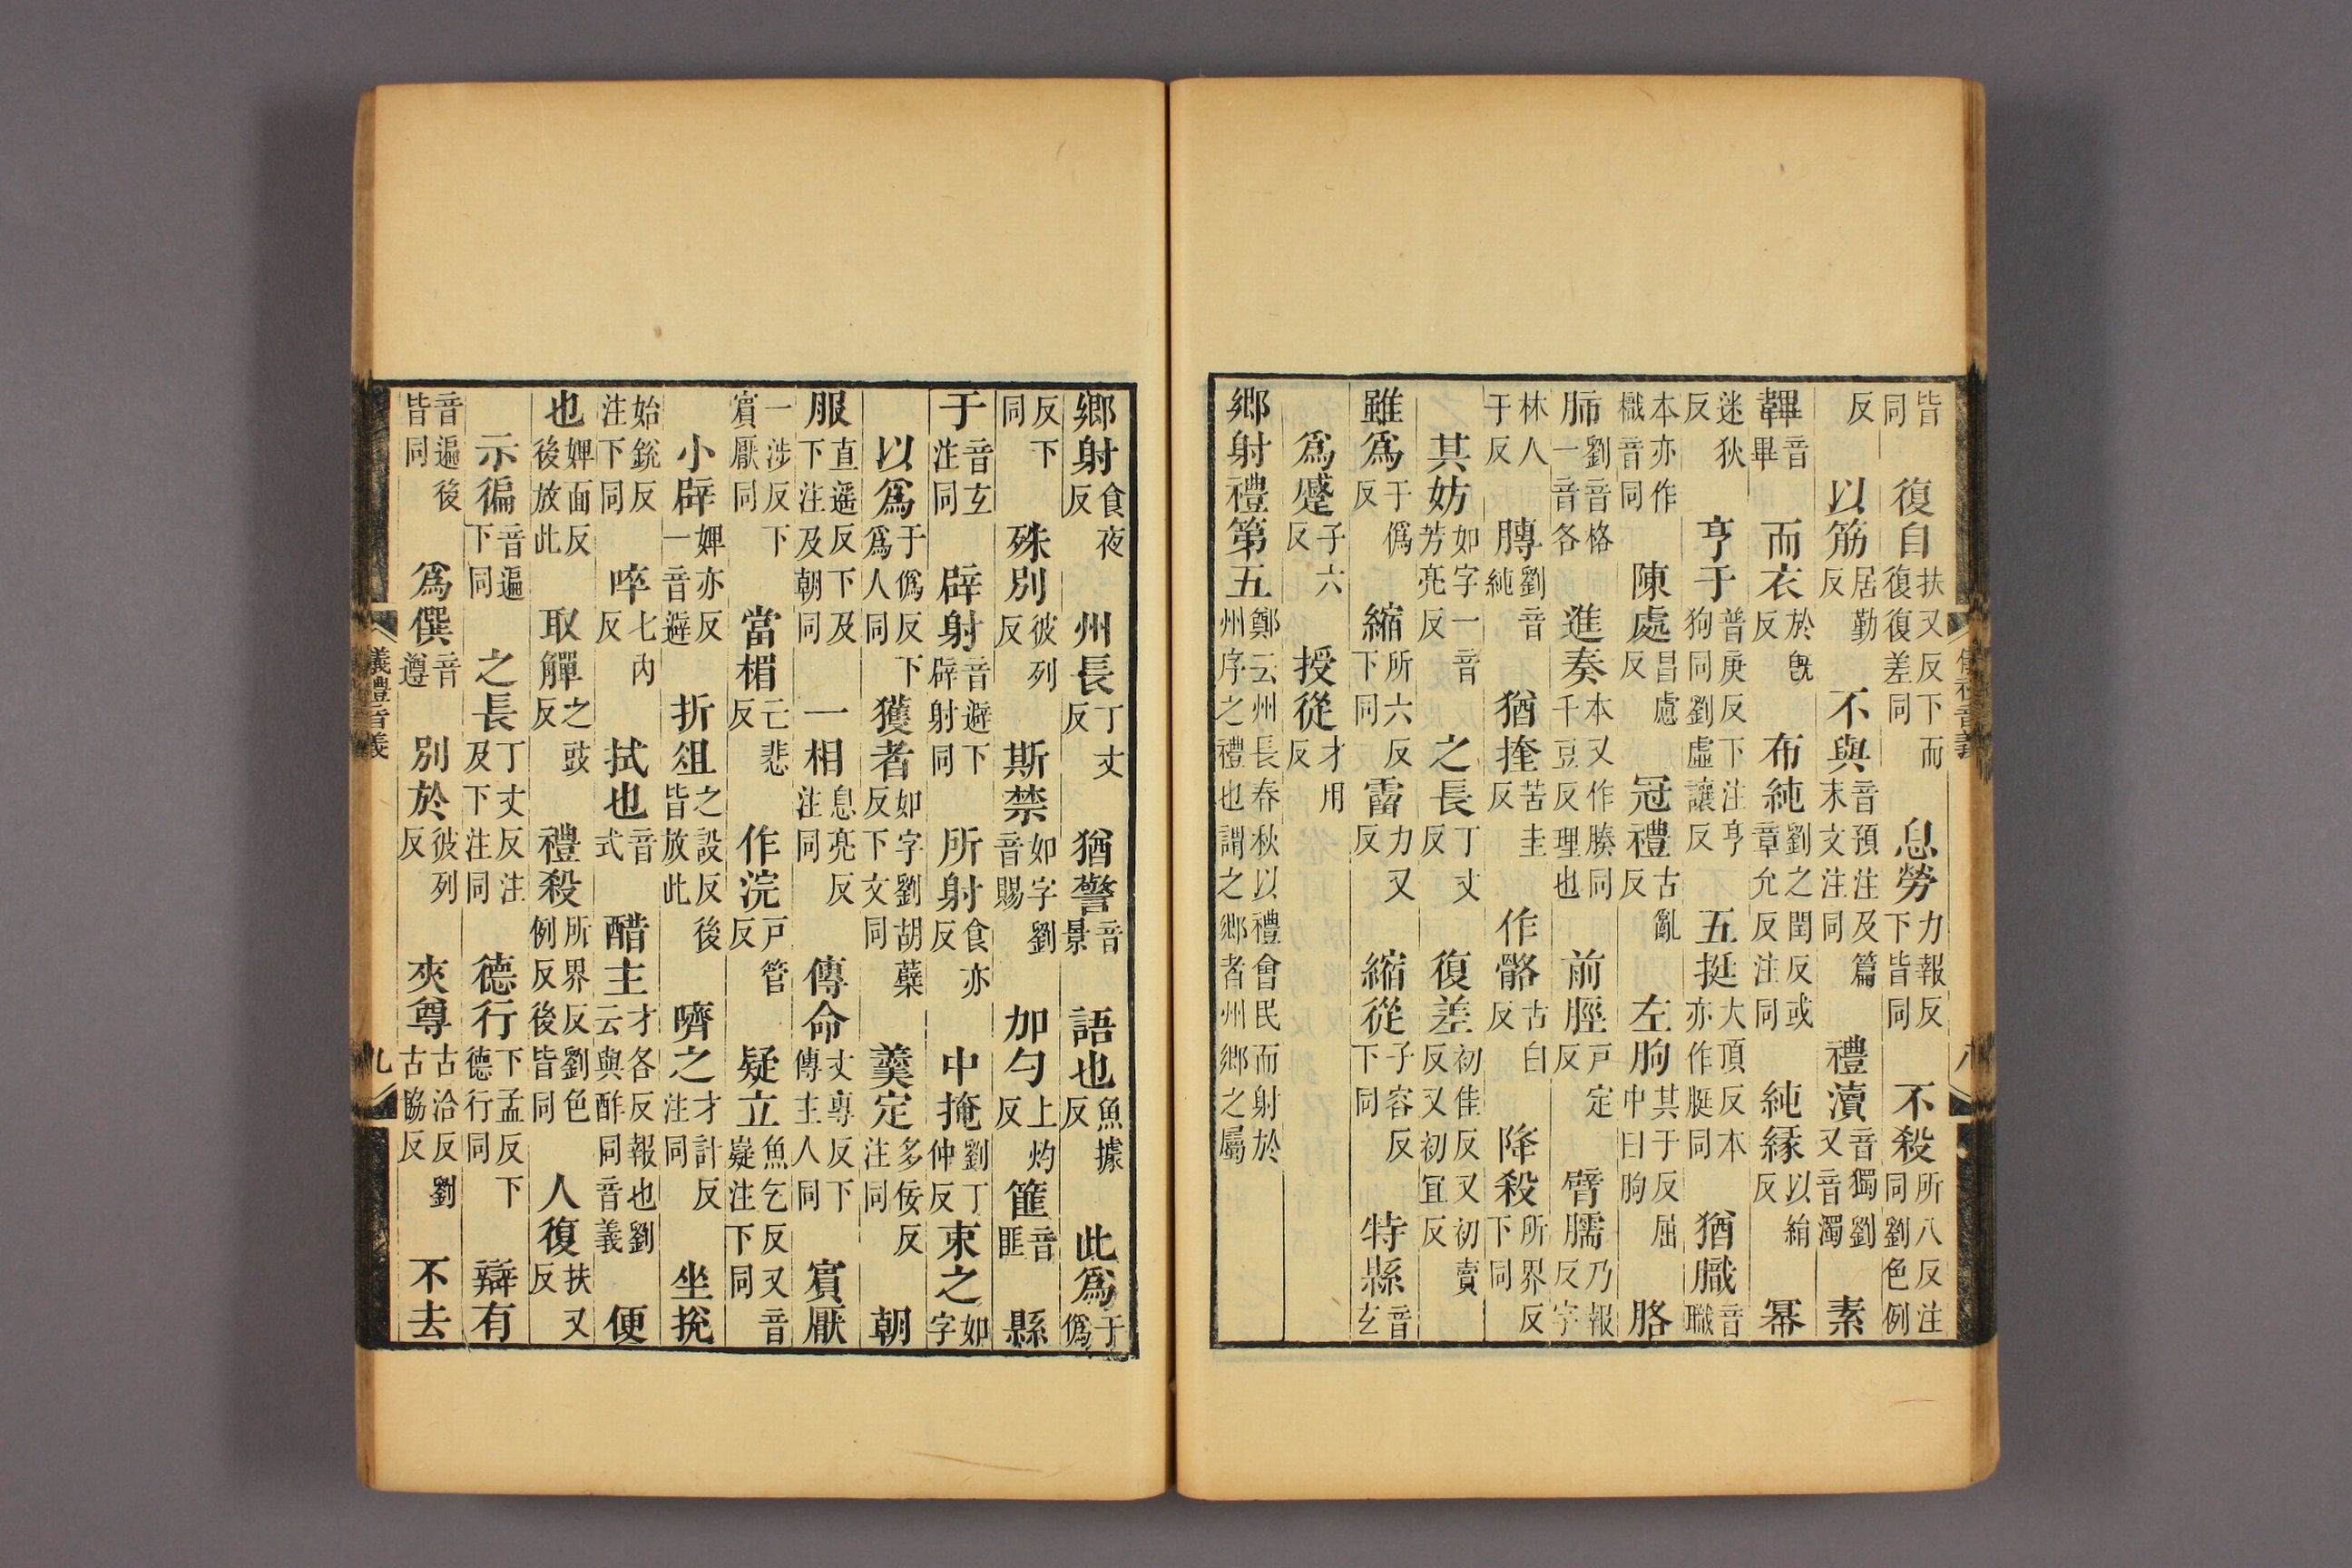 儀禮音義 八
皆同 復自 扶又反下而復復差同 息勞 力報反下皆同 不殺 所八反注同劉色例
反 以筋 居勤反 不與 音預注及篇末文注同 禮瀆 音獨劉又音濁 素
韠 音畢 而衣 於旣反 布純 劉之閏反或章允反注同 純緣 以絹反 冪
迷狄反 亨于 普庚反下注亨狗同劉虛讓反 五挺 大頂反本亦作脡同 猶膱 音職
本亦作樴音同 陳處 昌慮反 冠禮 古亂反 左朐 其于反屈中曰朐 胳
肺 劉音格一音各 進奏 本又作腠同千豆反理也 前脛 戶定反 臂臑 乃報反字
林人于反 膞 劉音純 猶㨒 苦圭反 作骼 古白反 降殺 所界反下同
其妨 如字一音芳亮反 之長 丁丈反 復差 初佳反又初賣反又初宜反
雖爲 于僞反 縮 所六反下同 霤 力又反 縮從 子容反下同 特縣 音玄
爲蹙 子六反 授從 才用反
鄉射禮第五 鄭云州長春秋以禮會民而射於州序之禮也謂之鄉者州鄉之屬
鄉射 食夜反 州長 丁丈反 猶警 音景 語也 魚據反 此爲 于僞
反下同 殊別 彼列反 斯禁 如字劉音賜 加勺 上灼反 篚 音匪 縣
于 音玄注同 辟射 音避下辟射同 所射 食亦反 中掩 劉丁仲反 束之 如字
以爲 于僞反下爲人同 獲者 如字劉胡蘗反下文同 羹定 多佞反注同 朝
服 直遥反下及下注及朝同 一相 息亮反注同 傳命 丈專反下傳主人同 賓厭
一涉反下賓厭同 當楣 亡悲反 作浣 戶管反 疑立 魚乞反又音嶷注下同
小辟 婢亦反一音避 折俎 之設反後皆放此 嚌之 才計反注同 坐挩
始銳反注下同 啐 七內反 拭也 音式 醋主 才各反報也劉云與酢同音義 便
也 婢面反後放此 取觶 之豉反 禮殺 所界反劉色例反後皆同 人復 扶又反
示徧 音遍下同 之長 丁丈反注及下注同 德行 下孟反下德行同 辯有
音遍後皆同 爲僎 音遵 別於 彼列反 夾尊 古洽反劉古協反 不去
儀禮音義 九